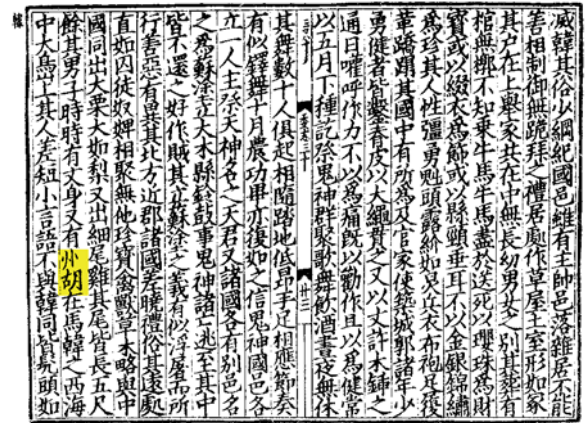 滅韓其俗少綱紀國邑雖有主帥邑落雜居不能
善相制御無跪拜之禮居處作草屋土室形如冢
其戶在上舉家共在中無長幼男女之別其葬有
棺無槨不知乘牛馬牛馬盡於送死以瓔珠爲財
寶或以綴衣爲飾或以縣頸垂耳不以金銀錦繡
爲珍其人性彊勇魁頭露紒如炅兵衣布袍足履
革蹻蹋其國中有所爲及官家使築城郭諸年少
勇健者皆鑿脊皮以大繩貫之又以丈許木鍤之
通日嚾呼作力不以爲痛既以勸作且以爲健常
以五月下種訖祭鬼神群聚歌舞飲酒晝夜無休
卄三
其舞數十人俱起相隨踏地低昂手足相應節奏
有似鐸舞十月農功畢亦復如之信鬼神國邑各
立一人主祭天神名之天君又諸國各有別邑名
之爲蘇塗立大木縣鈴鼓事鬼神諸亡逃至其中
皆不還之好作賊其立蘇塗之義有似浮屠而所
行善惡有異其北方近郡諸國差曉禮俗其遠處
直如囚徒奴婢相聚無他珍寶禽獸草木略與中
國同出大栗大如梨又出細尾雞其尾皆長五尺
餘其男子時時有文身又有州胡在馬韓之西海
中大島上其人差短小言語不與韓同皆髡頭如